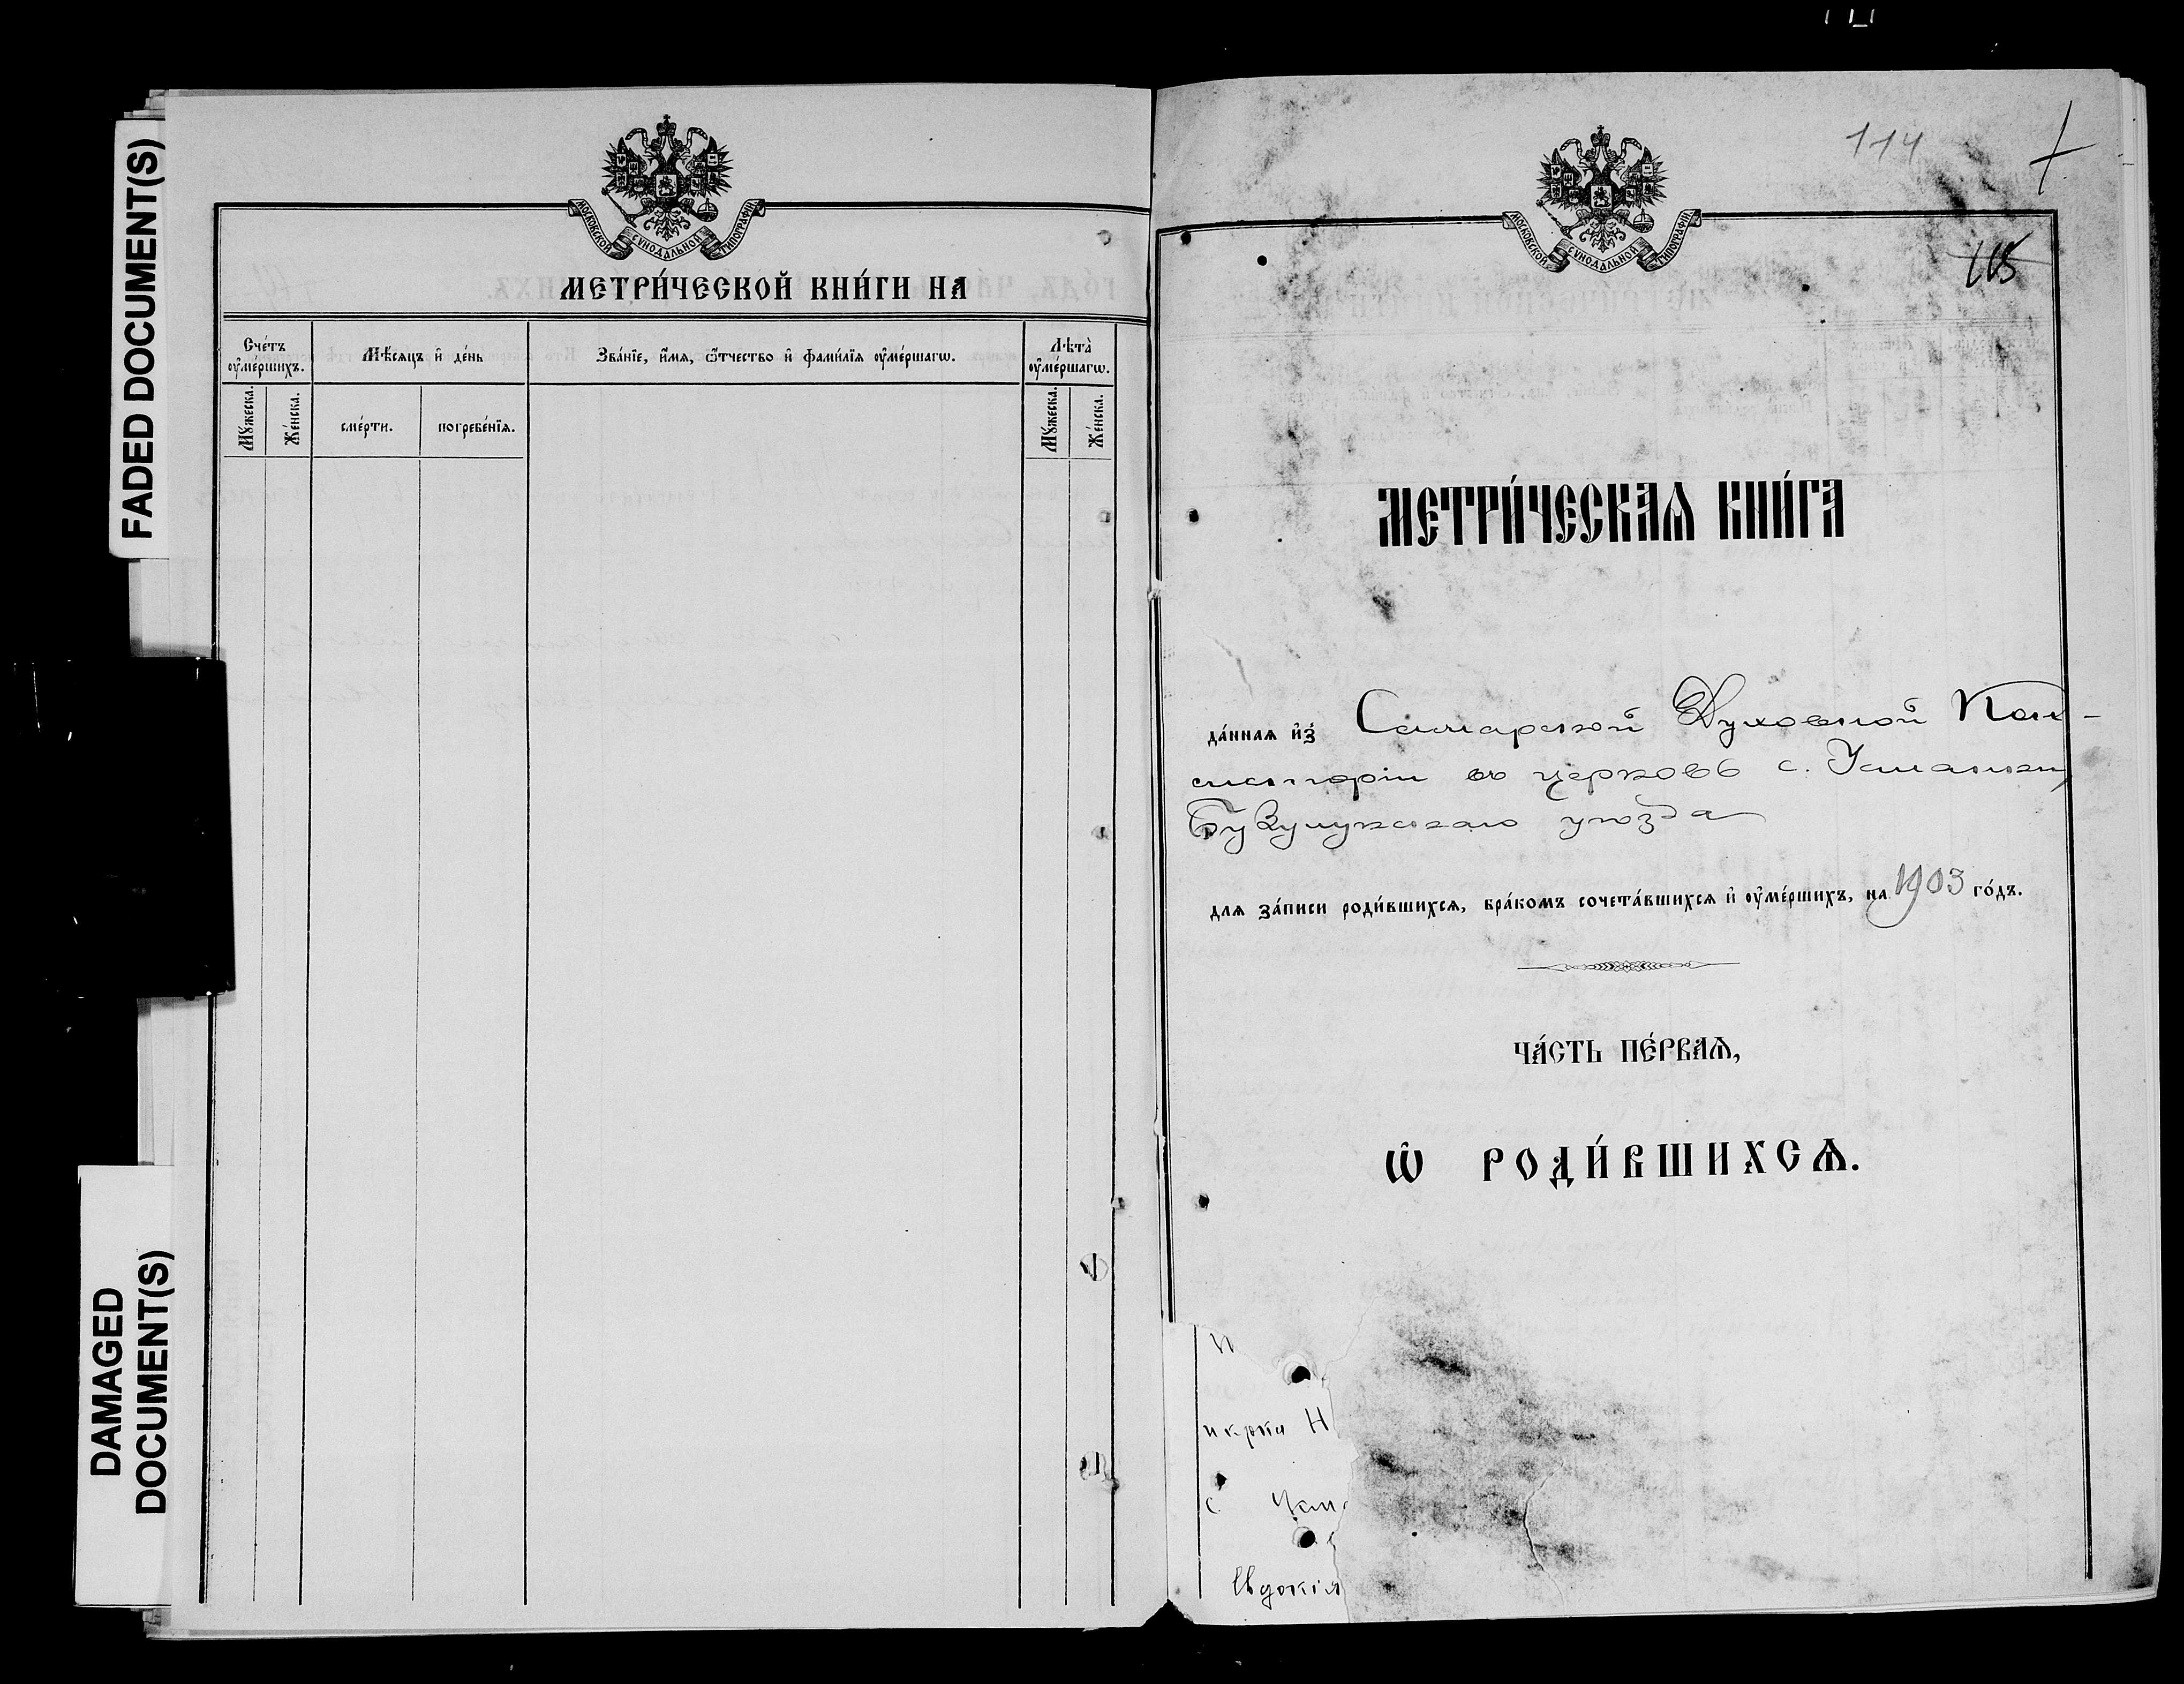 FADED DOCUMENT(S)
DAMAGED
DOCUMENT(S)
МОСКОВСКОЙ СѴНОДАЛЬНОЙ ТИПОГРАФІИ
МЕТРИ́ЧЕСКОЙ КНИ́ГИ НА
Сче́тъ ᲂу҆ме́ршихъ.
Мѣ́сяцъ и҆ де́нь
Зва́нїе, и҆́мя, ѻ҆́тчество и҆ фами́лїя ᲂу҆ме́ршагѡ.
Лѣ́та ᲂу҆ме́ршагѡ.
Мꙋ́жеска.
Же́нска.
сме́рти.
погребе́нїя.
Мꙋ́жеска.
Же́нска.
114
115
МОСКОВСКОЙ СѴНОДАЛЬНОЙ ТИПОГРАФІИ
МЕТРИ́ЧЕСКАѦ КНИ́ГА
да́нная и҆з̾ Самарской Духовной Кон-
систоріи въ церковь с. Усманки,
Бузулукскаго уѣзда
для за́писи роди́вшихся, бра́комъ сочета́вшихся и҆ ᲂу҆ме́ршихъ, на 1903 го́дъ.
ЧА́СТЬ ПЕ́РВАѦ,
Ѽ РОДИ́ВШИХСѦ.
Н
с.
Евдокія